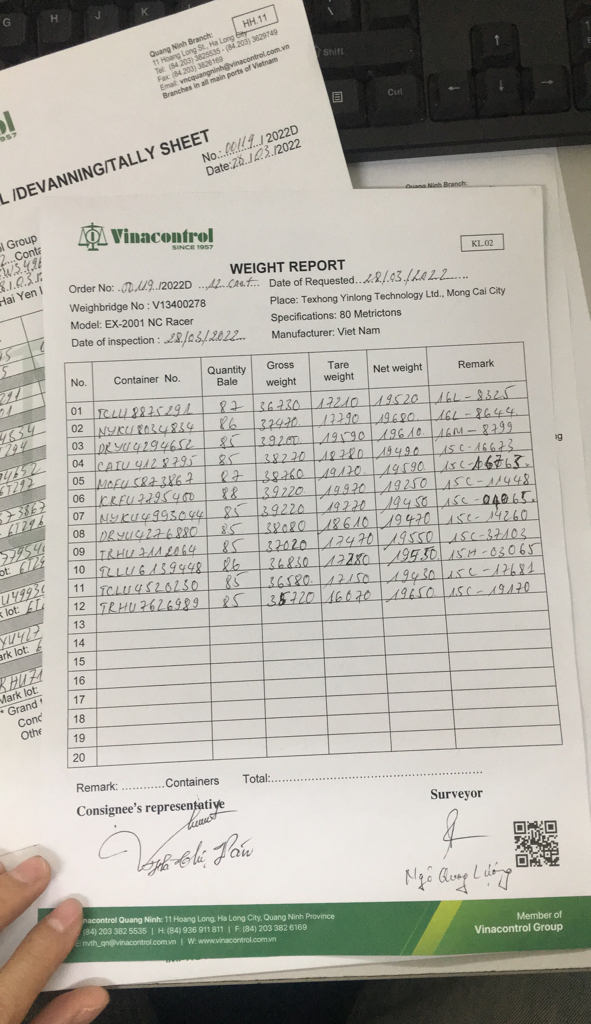 G H J K
Shift
Ctrl
HH.11
Quang Ninh Branch:
11 Hoang Long St., Ha Long City
Tel: (84.203) 3825535 - (84.203) 3629749
Fax: (84.203) 3826169
Email: vncquangninh@vinacontrol.com.vn
Branches in all main ports of Vietnam
L /DEVANNING/TALLY SHEET
No.: 00119 / 2022D
Date: 28/03/2022
Quang Ninh Branch:
Vinacontrol
SINCE 1957
KL.02
WEIGHT REPORT
Order No: 00119/2022D 12 cont Date of Requested 28/03/2022
Weighbridge No : V13400278 Place: Texhong Yinlong Technology Ltd., Mong Cai City
Model: EX-2001 NC Racer Specifications: 80 Metrictons
Date of inspection : 28/03/2022 Manufacturer: Viet Nam
No. Container No. Quantity Bale Gross weight Tare weight Net weight Remark
01 TCLU8875291 87 36730 17210 19520 16L-8325
02 NYKU8034834 86 37470 17790 19680 16L-8644
03 DRYU4294652 85 39200 19590 19610 16M-8799
04 CAIU4128795 85 38270 18780 19490 15C-16673
05 MOFU5873867 87 38760 19170 19590 15C-16763
06 KKFU7795400 88 39220 19970 19250 15C-11448
07 NYKU4993044 85 39220 19770 19450 15C-04065
08 DRYU4276880 85 38080 18610 19470 15C-14260
09 TRHU7112064 85 37020 17470 19550 15C-37103
10 TLLU6139448 86 36830 17280 19550 15H-03065
11 TCLU4520230 85 36580 17150 19430 15C-17681
12 TRHU7626989 85 35720 16070 19650 15C-19170
13
14
15
16
17
18
19
20
Remark: ............Containers Total:
Consignee's representative Surveyor
Ngô Quang Lượng
nacontrol Quang Ninh: 11 Hoang Long, Ha Long City, Quang Ninh Province
(84) 203 382 5535 | H: (84) 936 911 811 | F: (84) 203 382 6169
nvth_qn@vinacontrol.com.vn | W: www.vinacontrol.com.vn
Member of
Vinacontrol Group